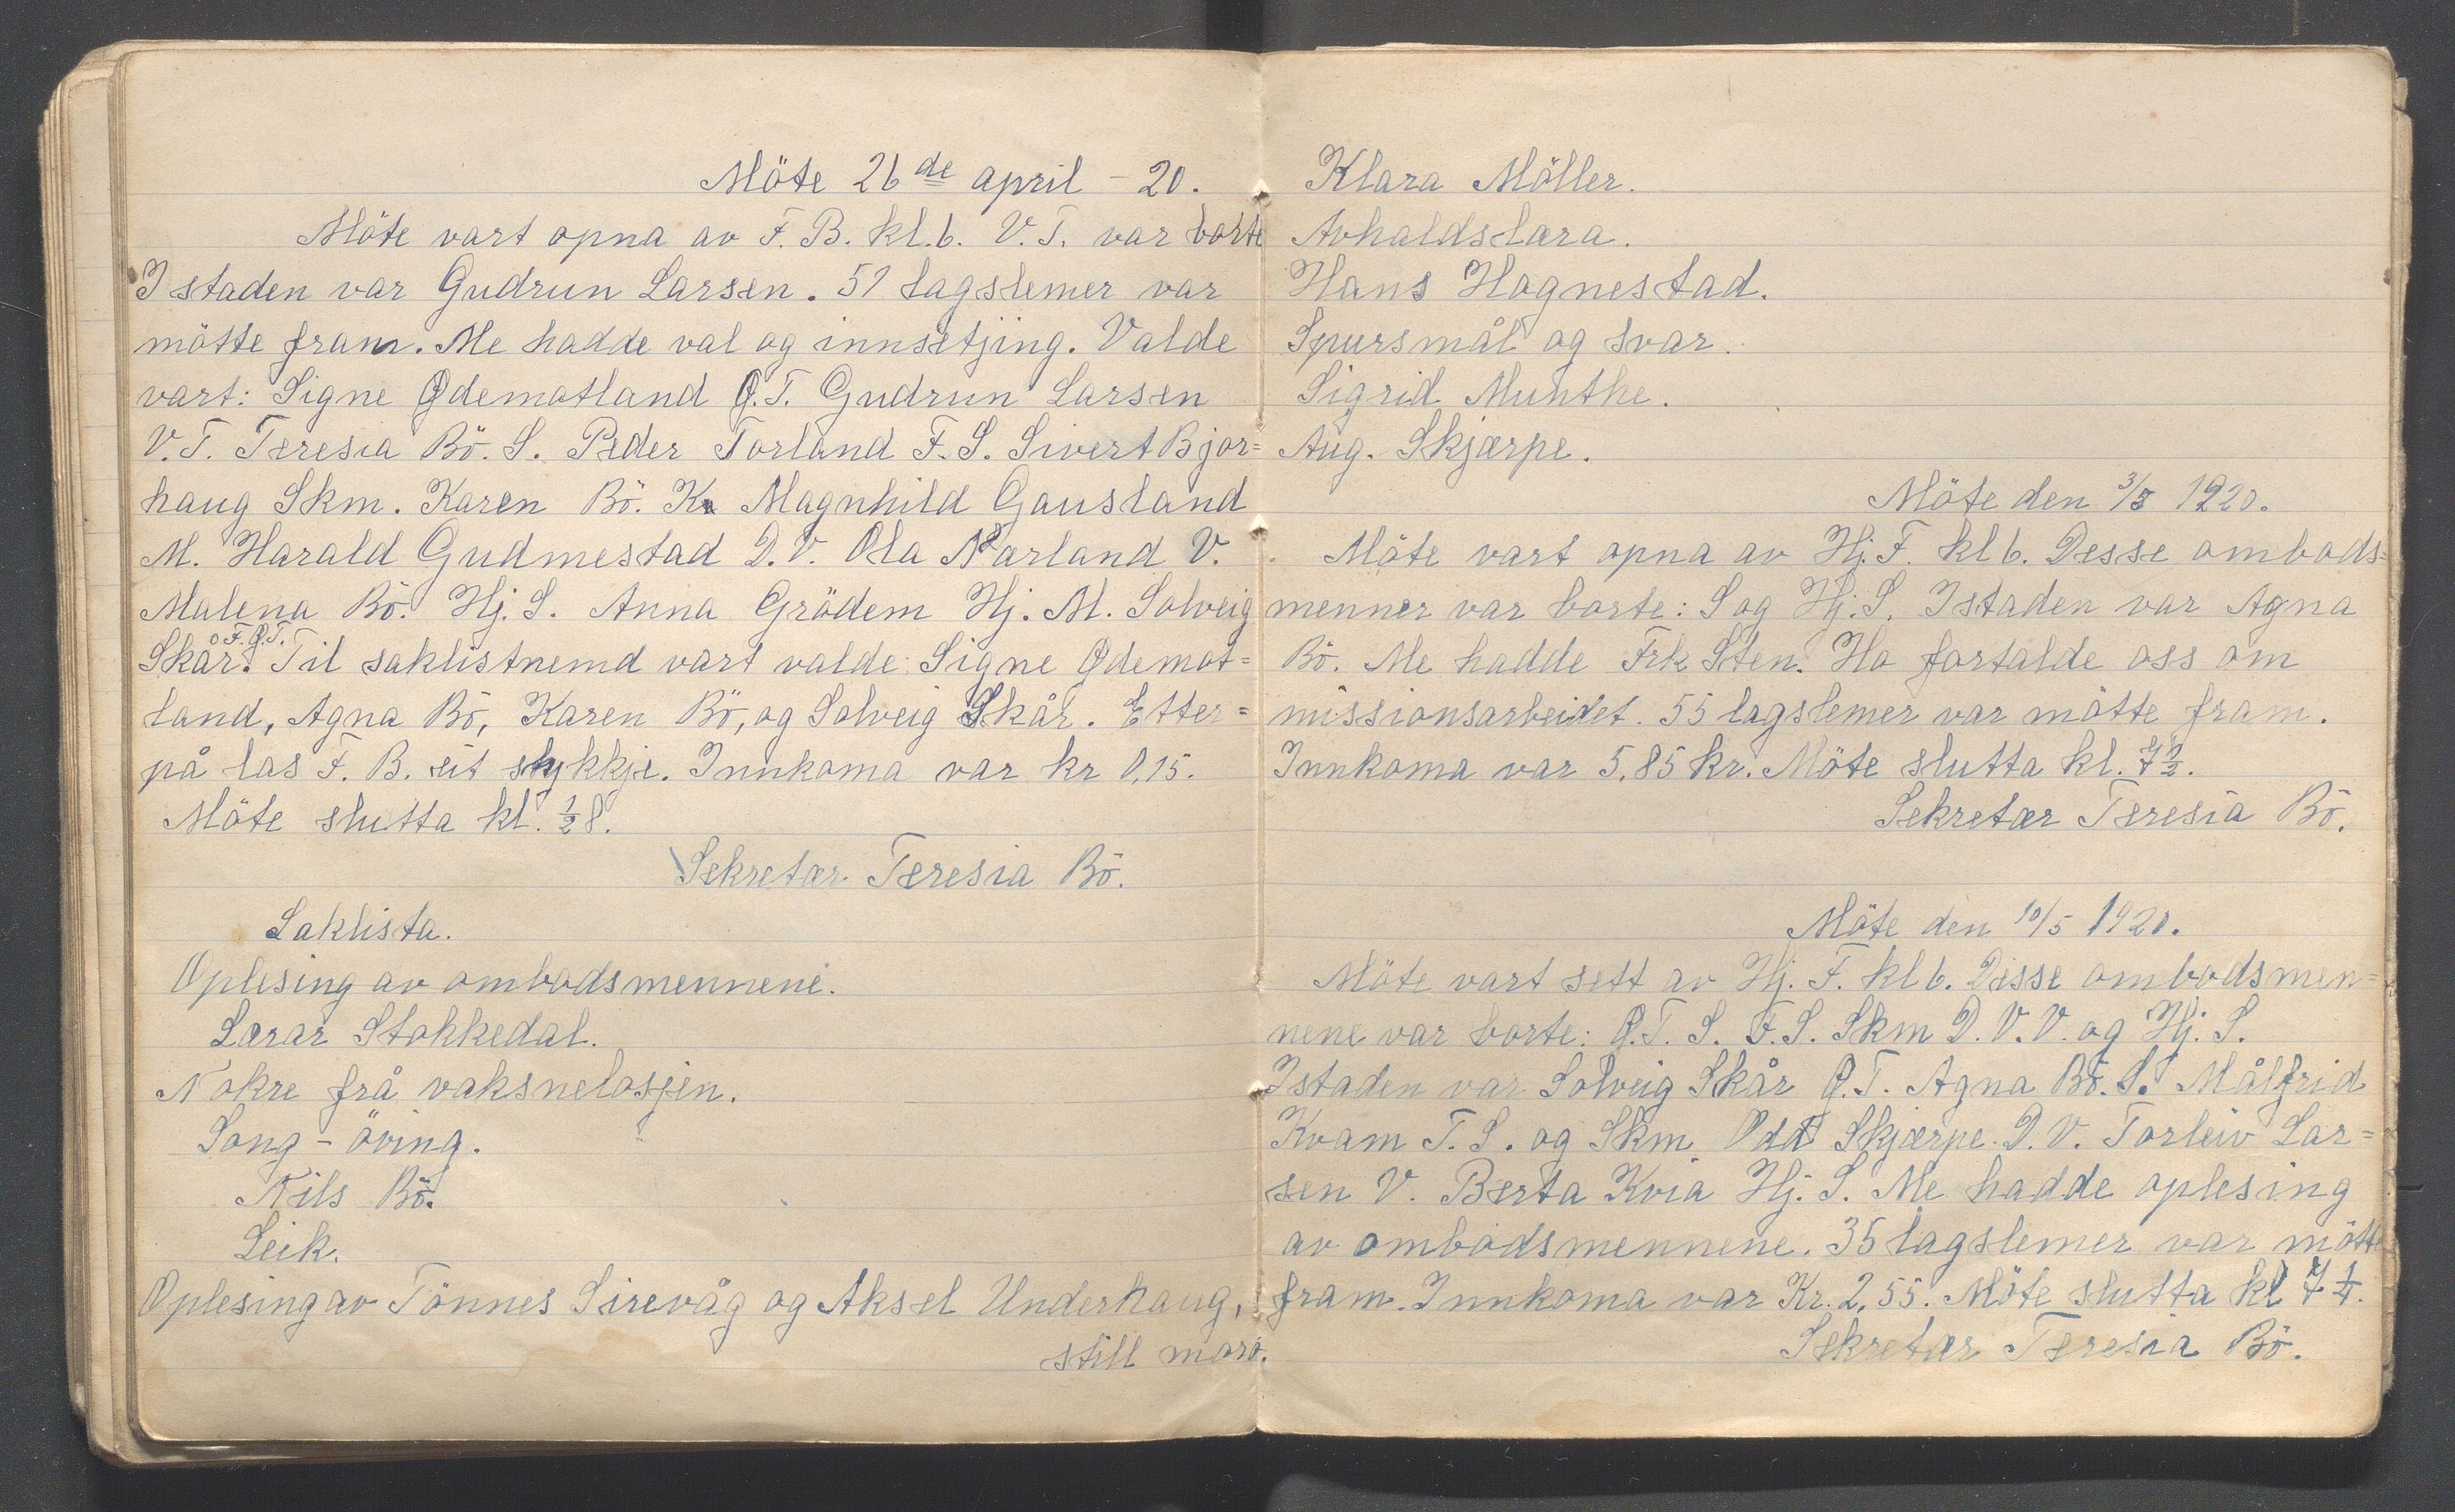 Möte 26de april - 20.
Möte vart opna av F. B. kl. 6. V. T. var borte
I staden var Gudrun Larsen. 51 lagslemer var
mötte fram. Me hadde val og innsetjing. Valde
vart: Signe Ødemotland Ø.T. Gudrun Larsen
V.T. Teresia Bö. S. Peder Torland F. S. Sivert Bjor=
haug Skm. Karen Bö. K. Magnhild Gausland
M. Harald Gudmestad D.V. Ola Narland V.
Malena Bö. Hj. S. Anna Grödem Hj. M. Solveig
Skår. F.Ø.T. Til saklistnemd vart valde: Signe Ødemot=
land, Agna Bö, Karen Bö, og Solveig Skår. Etter=
på las F. B. eit stykkje. Innkoma var kr 0,15.
Möte slutta kl. ½ 8.
Sekretær Teresia Bö.
Saklista.
Oplesing av ombodsmennene.
Lærar Stokkedal.
Nokre frå vaksnelosjen.
Song - öving.
Nils Bö.
Leik.
Oplesing av Tönnes Sirevåg og Aksel Underhaug,
still moro.
Klara Möller.
Avhaldslæra.
Hans Hognestad.
Spursmål og svar.
Sigrid Munthe.
Aug. Skjærpe.
Möte den 3/5 1920.
Möte vart opna av Hj. F. kl 6. Desse ombods=
menner var borte: S og Hj. S. Istaden var Agna
Bö. Me hadde Frk Sten. Ho fortalde oss om
missionsarbeidet. 55 lagslemer var mötte fram.
Innkoma var 5,85 kr. Möte slutta kl. 7½.
Sekretær Teresia Bö.
Möte den 10/5 1920.
Möte vart sett av Hj. F. kl 6. Disse ombodsmen=
nene var borte: Ø.T. S. F.S. Skm D.V. V. og Hj. S.
Istaden var Solveig Skår Ø.T. Agna Bö. S. Målfrid
Kvam F. S. og Skm. Odd Skjærpe. D. V. Torleiv Lar=
sen V. Berta Kvia Hj. S. Me hadde oplesing
av ombodsmennene. 35 lagslemer var mötte
fram. Innkoma var Kr. 2,55. Möte slutta kl 7¼.
Sekretær Teresia Bö.